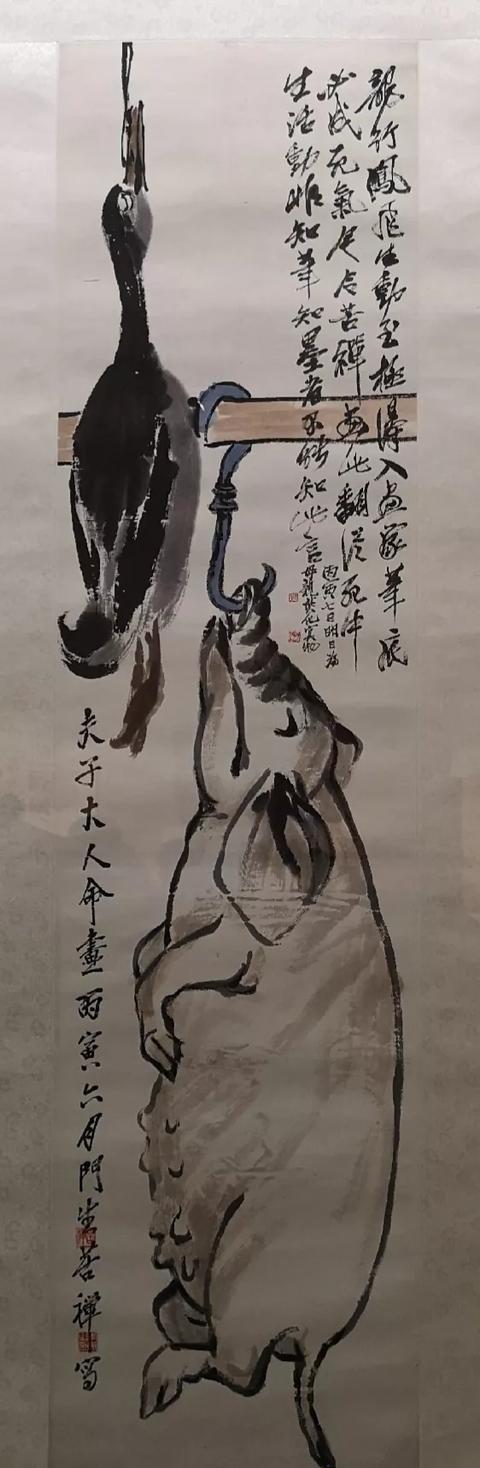 龍行鳳飛生動至極入畫家筆底
必成死氣苦禪畫此翻從死中
生活動非知筆知墨者不能知此言
丙寅七日明日为
夫子大人命畫丙寅六月門生苦禪寫